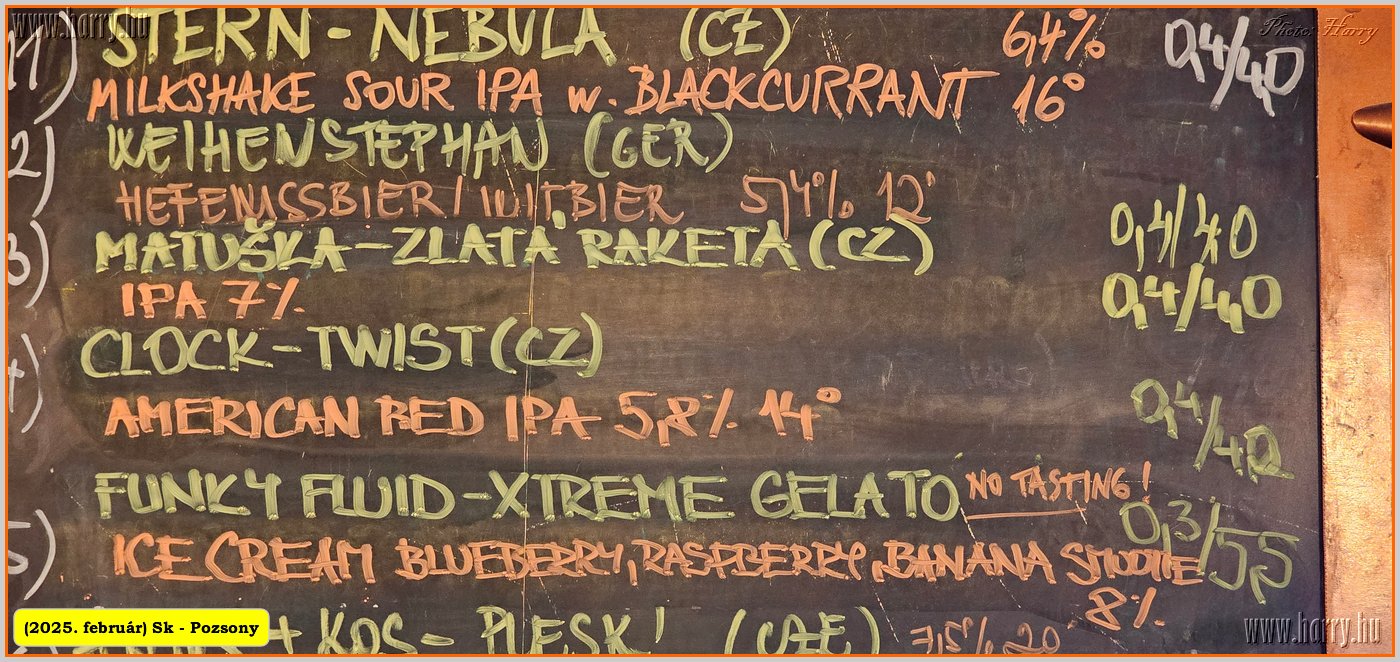 www.harry.hu
Photo: Harry
1) STERN - NEBULA (CZ) 6,4% 0,4/4,0
MILKSHAKE SOUR IPA w. BLACKCURRANT 16°
2) WEIHENSTEPHAN (GER)
HEFEWISSBIER / WITBIER 5,4% 12° 0,4/4,0
3) MATUŠKA - ZLATÁ RAKETA (CZ) 0,4/4,0
IPA 7%
4) CLOCK - TWIST (CZ)
AMERICAN RED IPA 5,8% 14° 0,4/4,0
5) FUNKY FLUID - XTREME GELATO NO TASTING! 0,3/5,5
ICE CREAM BLUEBERRY, RASPBERRY, BANANA SMOOTIE
8%
+ KOS - PLESK! (CZE) 7,5% 20
(2025. február) Sk - Pozsony
www.harry.hu